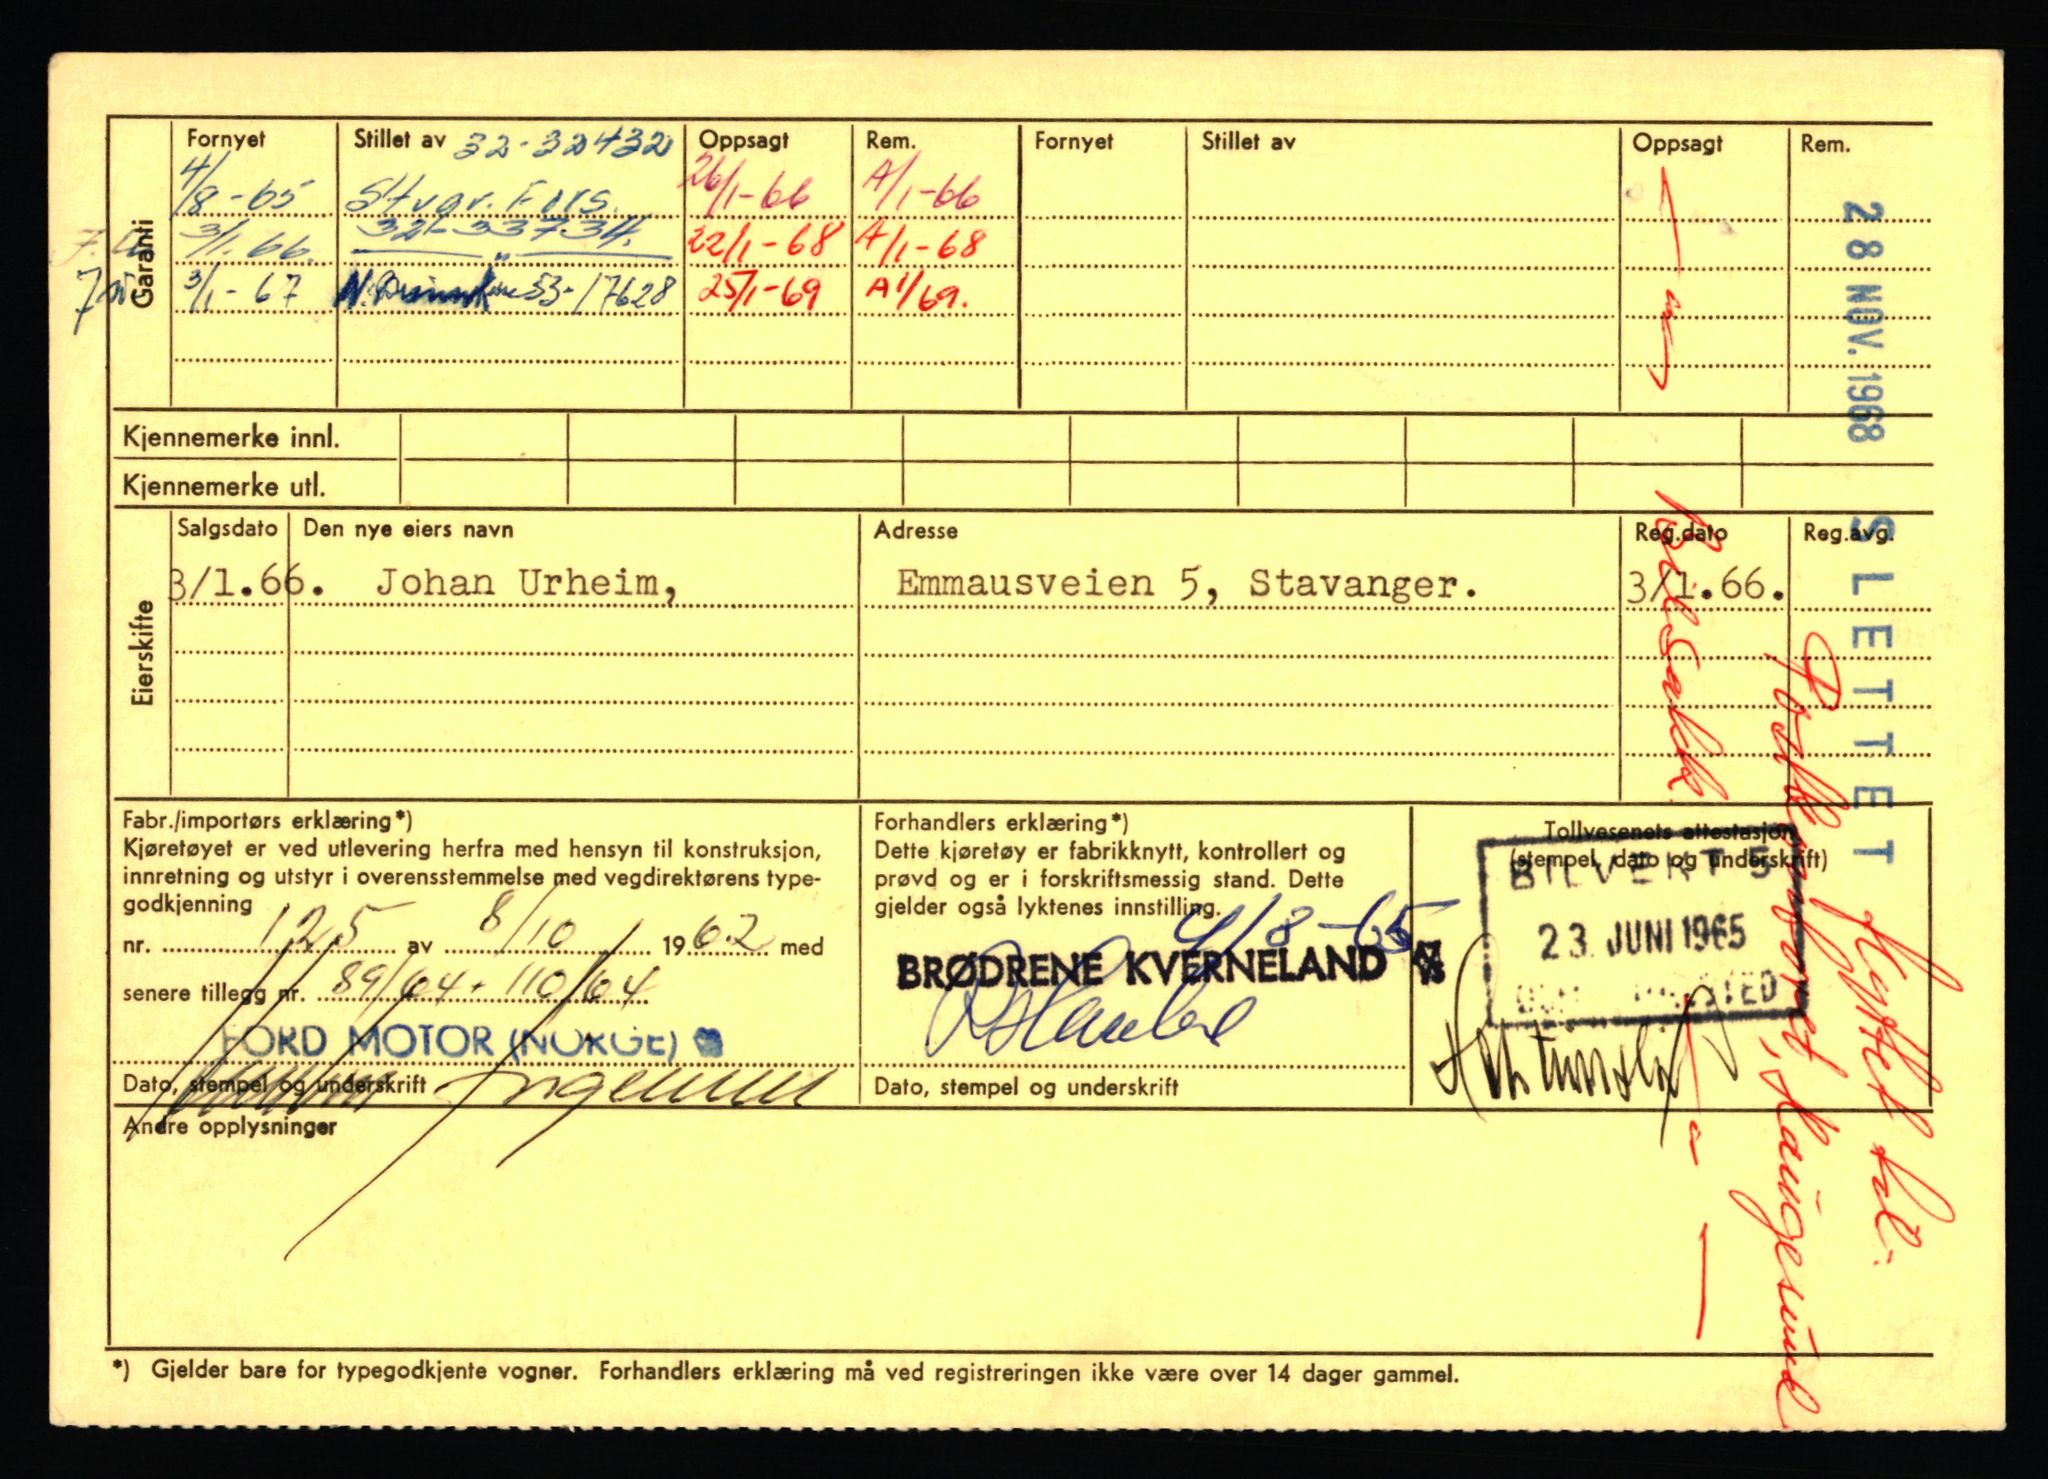 Garanti
Fornyet Stillet av 32-32432 Oppsagt Rem. Fornyet Stillet av Oppsagt Rem.
4/8-65 Stvgr. Fors. 26/1-66 A/1-66
3/1.66. 32-33734. 22/1-68 A/1-68
3/1-67 53-17628 25/1-69 A1/69.
28 NOV. 1968
SLETTET
Kjennemerke innl.
Kjennemerke utl.
Eierskifte
Salgsdato Den nye eiers navn Adresse Reg.dato Reg.avg.
3/1.66. Johan Urheim, Emmausveien 5, Stavanger. 3/1.66.
Bilsakk.
Flyttet til:
Politikontoret, Haugesund
Fabr./importørs erklæring*)
Kjøretøyet er ved utlevering herfra med hensyn til konstruksjon,
innretning og utstyr i overensstemmelse med vegdirektørens type-
godkjenning
nr. 125 av 8/10 1962 med
senere tillegg nr. 89/64 + 110/64
FORD MOTOR (NORGE)
Dato, stempel og underskrift
Forhandlers erklæring*)
Dette kjøretøy er fabrikknytt, kontrollert og
prøvd og er i forskriftsmessig stand. Dette
gjelder også lyktenes innstilling.
4/8-65
BRØDRENE KVERNELAND A/S
Dato, stempel og underskrift
Tollvesenets attestasjon
(stempel, dato og underskrift)
23. JUNI 1965
Andre opplysninger
*) Gjelder bare for typegodkjente vogner. Forhandlers erklæring må ved registreringen ikke være over 14 dager gammel.